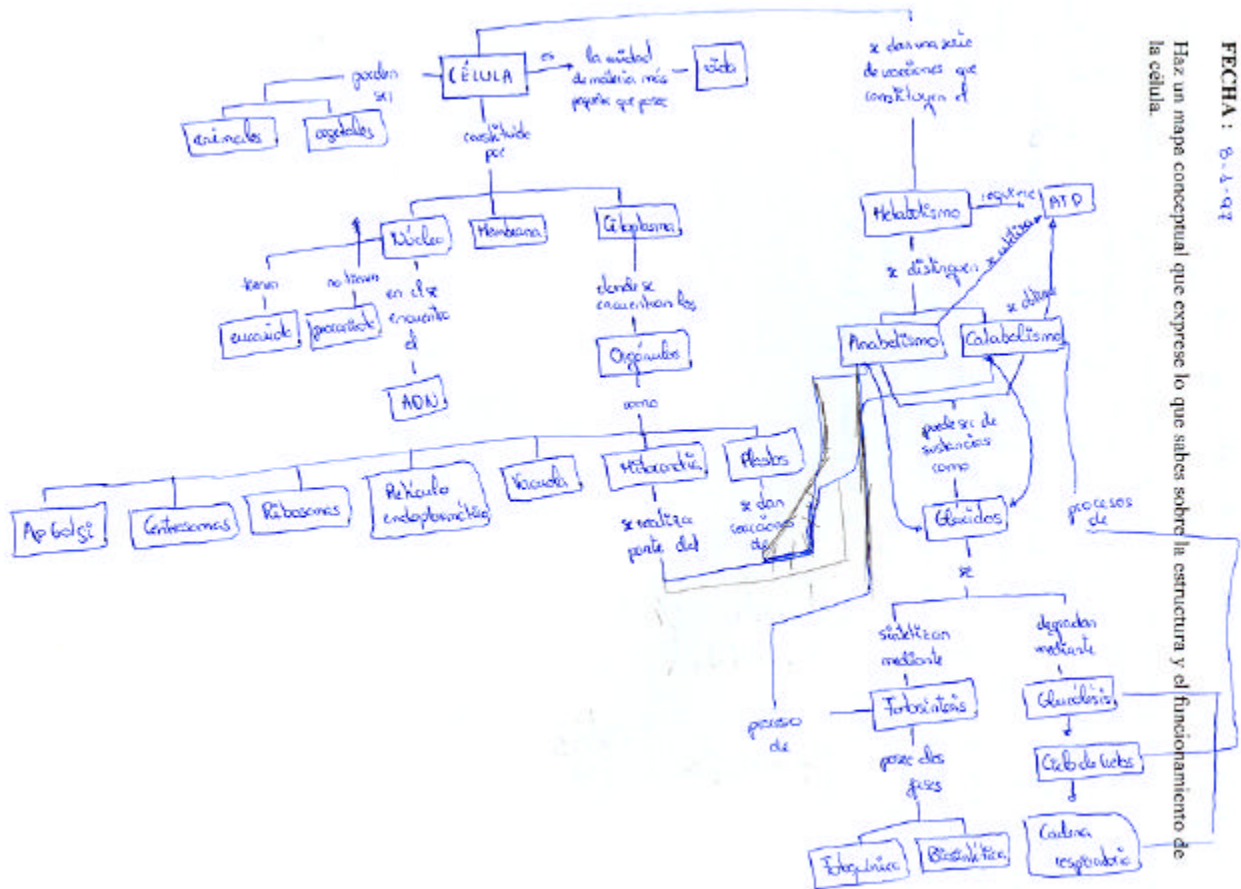 FECHA : 8-1-97
Haz un mapa conceptual que exprese lo que sabes sobre la estructura y el funcionamiento de
la célula.
CÉLULA
es
la unidad
de materia más
pequeña que posee
vida
pueden
ser
animales
vegetales
constituida
por
Núcleo
Membrana
Citoplasma
tienen
no tienen
eucariota
procariota
en el se
encuentra
el
ADN
donde se
encuentran los
Orgánulos
como
Ap Golgi
Centrosomas
Ribosomas
Retículo
endoplasmático
Vacuola
Mitocondria
Plastos
se realiza
parte del
se dan
reacciones
de
se dan una serie
de reacciones que
constituyen el
Metabolismo
requiere
ATP
se distinguen
se utiliza
se obtiene
Anabolismo
Catabolismo
puede ser de
sustancias
como
Glúcidos
procesos
de
se
sintetizan
mediante
degradan
mediante
proceso
de
Fotosíntesis
Glucólisis
posee dos
fases
Ciclo de Krebs
Fotoquímica
Biosintética
Cadena
respiratoria